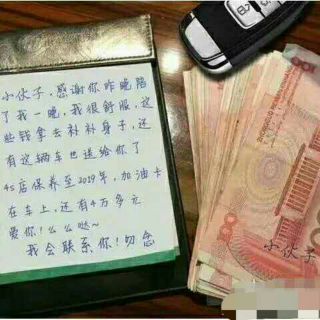 小伙子，感谢你昨晚陪
了我一晚，我很舒服，这
些钱拿去补补身子，还
有这辆车也送给你了
4S店保养至2019年，加油卡
在车上，还有4万多元
爱你！么么哒~
我会联系你！切念
小伙子